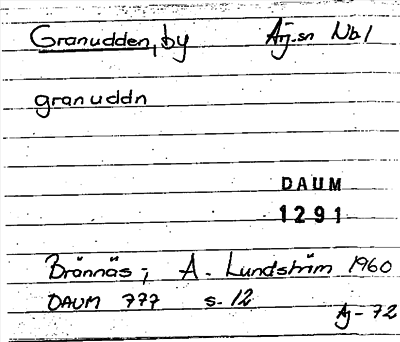 Granudden, by Arj.sn Nbl
granuddn
DAUM
1291
Brännäs; A. Lundström 1960
DAUM 777 s. 12
Aj-72